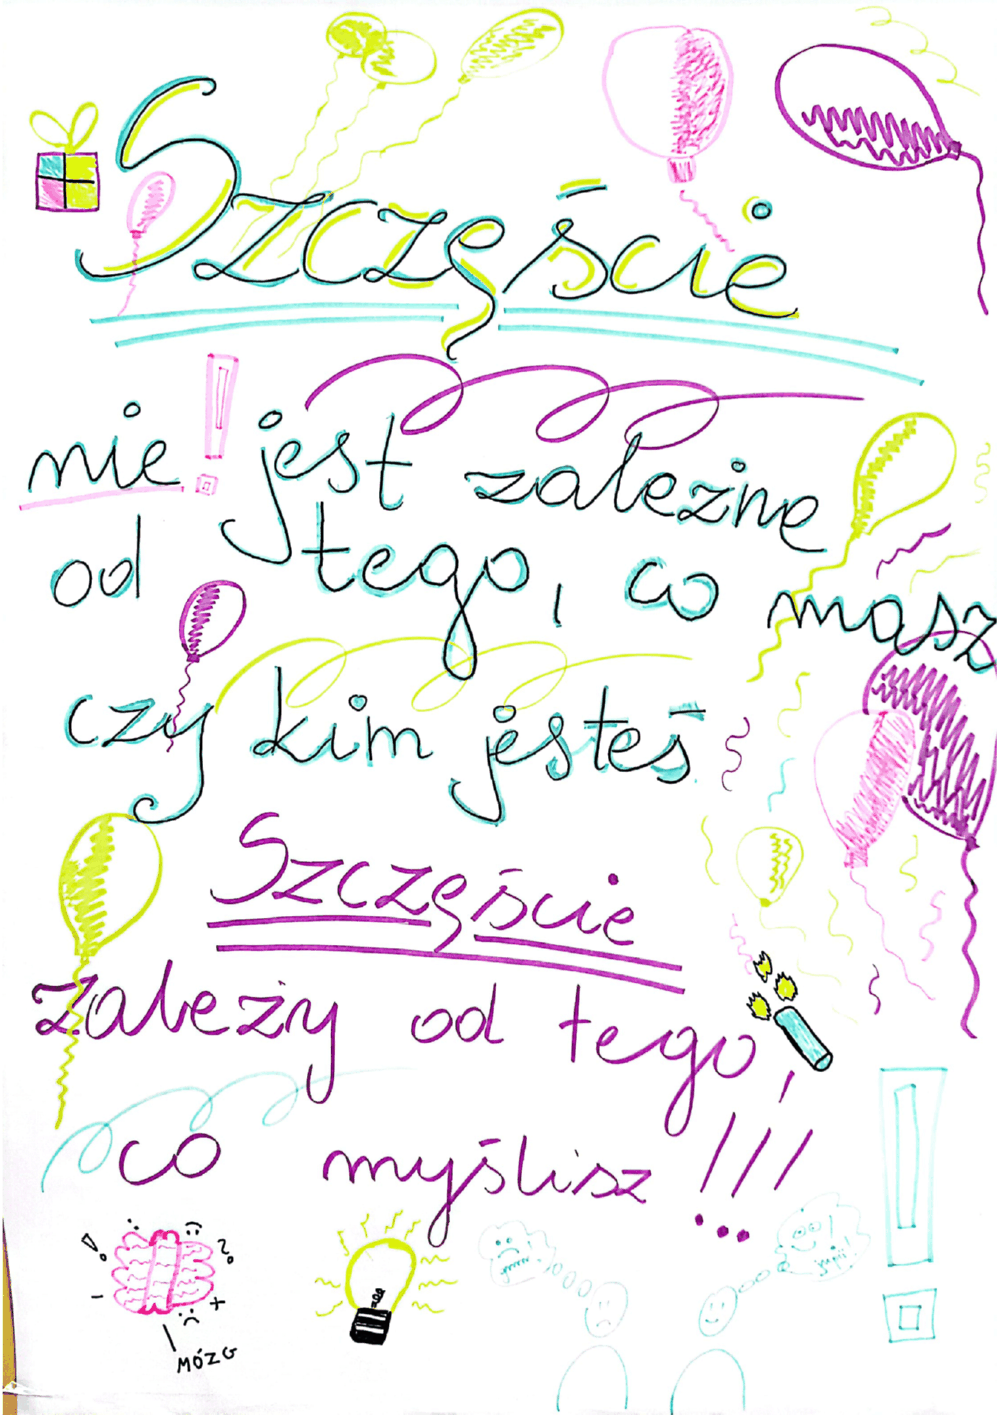 Szczęście
nie! jest zależne
od tego, co masz
czy kim jesteś
Szczęście
zależy od tego,
co myślisz !!!
MÓZG
grrrr!
jupii!